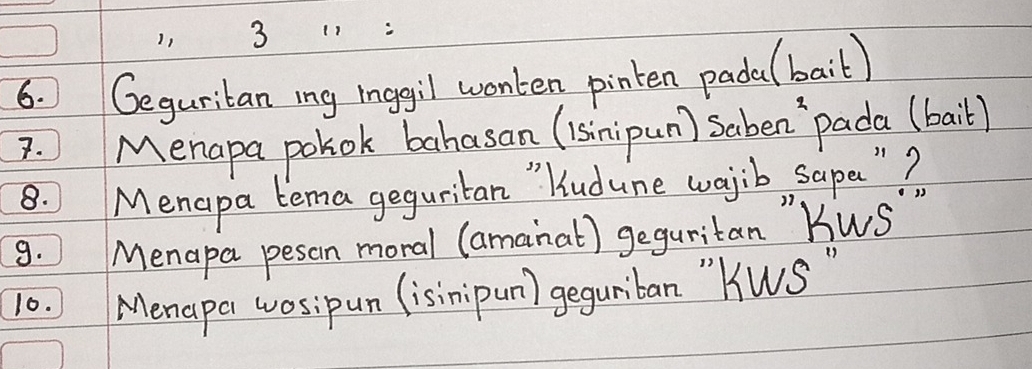 ,, 3 " :
6. Geguritan ing inggil wonten pinten pada (bait)
7. Menapa pokok bahasan (isinipun) saben² pada (bait)
8. Menapa tema geguritan "Kudune wajib sapa" ?
9. Menapa pesan moral (amanat) geguritan "KWS"
10. Menapa wosipun (isinipun) geguritan "KWS"